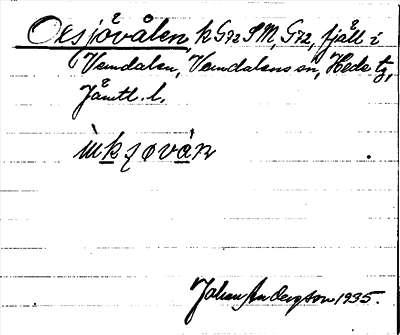 Oxsjövålen, k G72 SN, G72, fjäll i
Vemdalen, Vemdalens sn, Hede tg,
Jämtl. l.
Johan Andersson 1935.